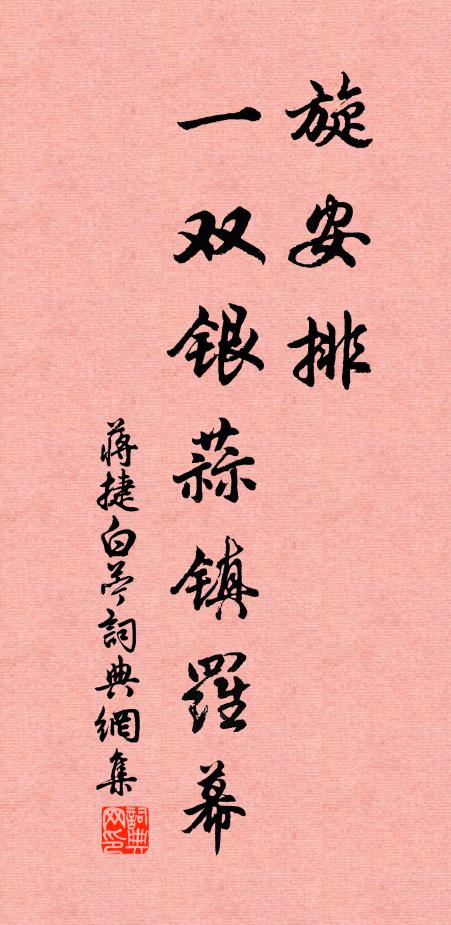 旋安排
一双银蒜镇羅幕
蒋捷白苧詞典網集
詞典网印